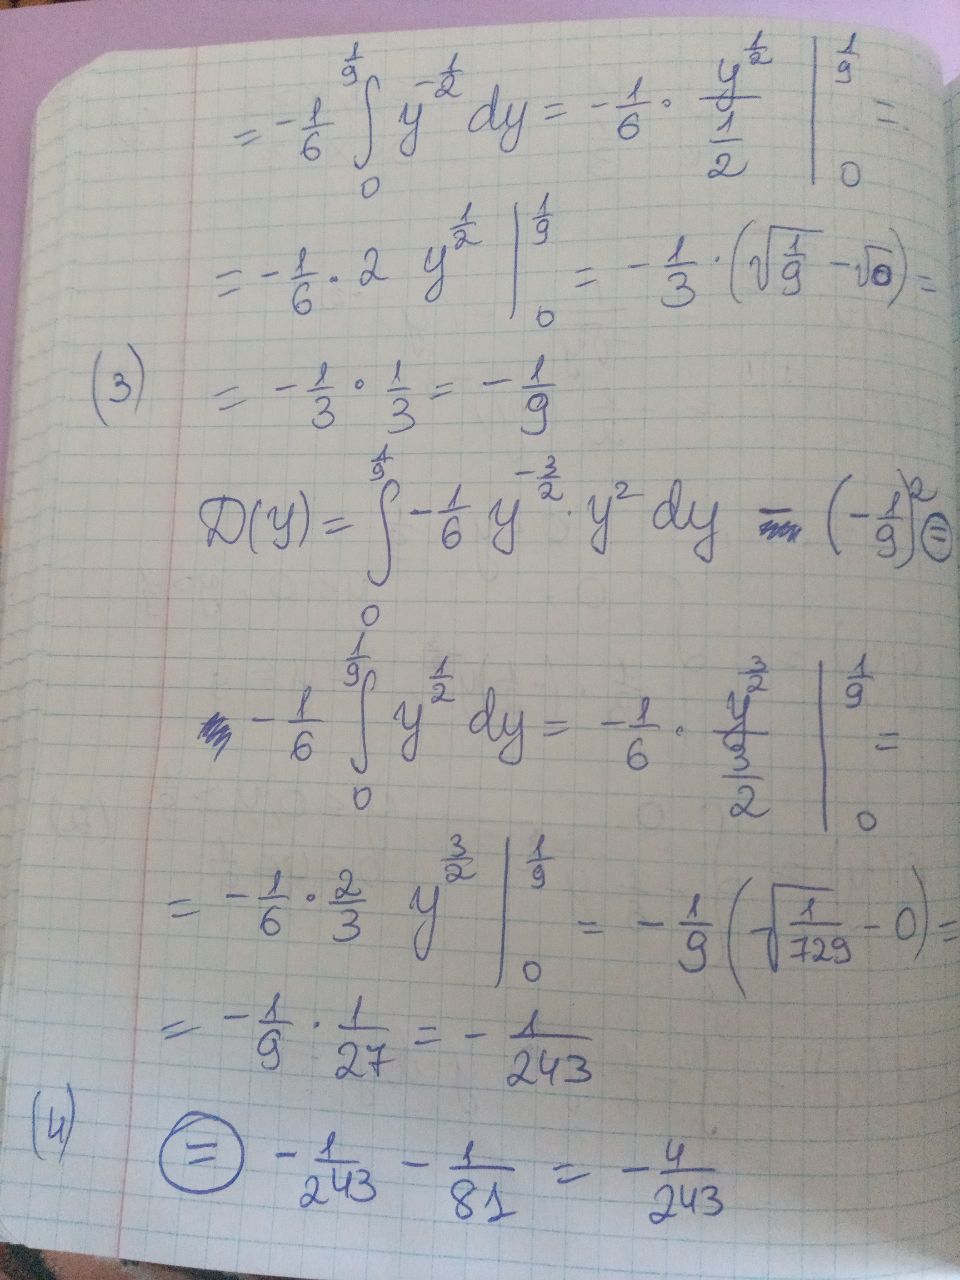 = -1/6 ∫₀^{1/9} y^{-1/2} dy = -1/6 · y^{1/2}/(1/2) |₀^{1/9} =
= -1/6 · 2 y^{1/2} |₀^{1/9} = -1/3 · (√(1/9) - √0) =
(3) = -1/3 · 1/3 = -1/9
D(y) = ∫₀^{1/9} -1/6 y^{-3/2} · y² dy - (-1/9)² ⊜
-1/6 ∫₀^{1/9} y^{1/2} dy = -1/6 · y^{3/2}/(3/2) |₀^{1/9} =
= -1/6 · 2/3 y^{3/2} |₀^{1/9} = -1/9 (√(1/729) - 0) =
= -1/9 · 1/27 = -1/243
(4) ⊜ -1/243 - 1/81 = -4/243